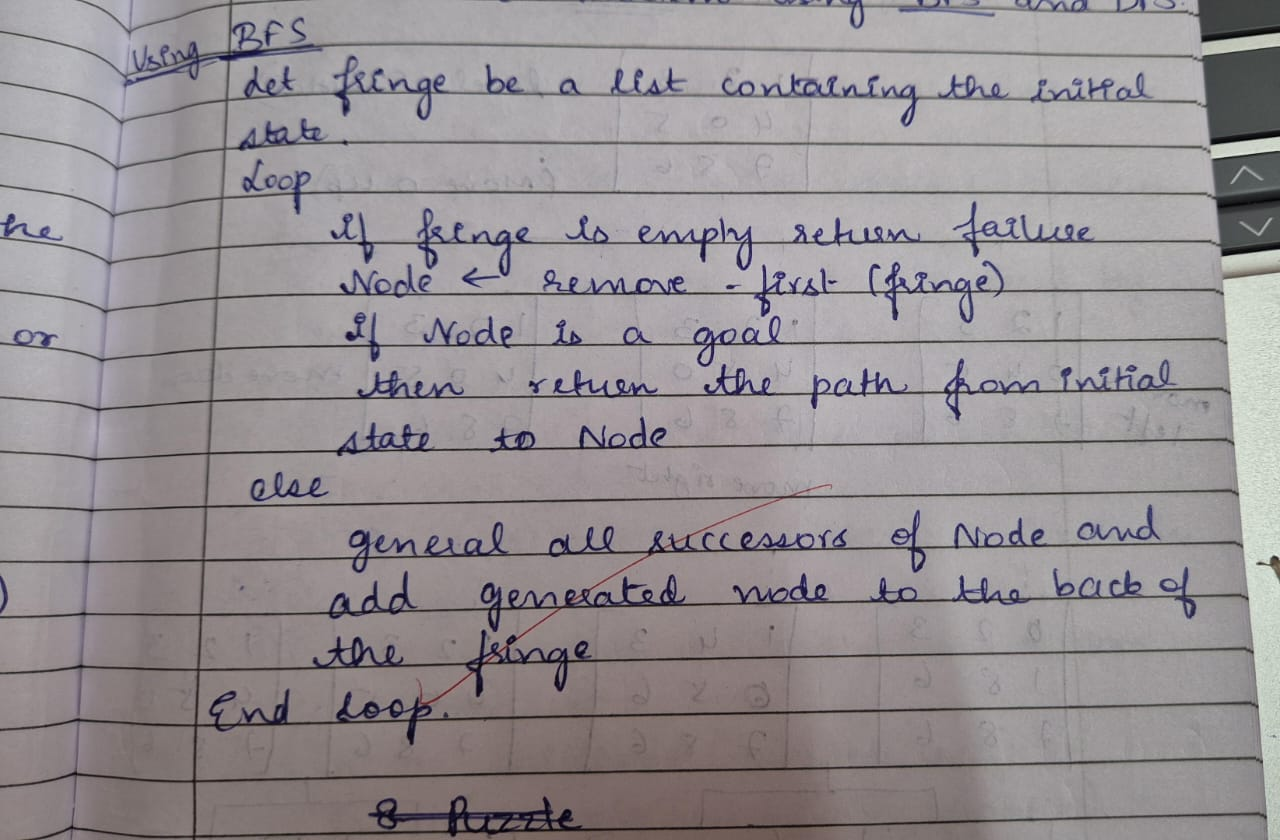 using BFS and DFS.
Using BFS
Let fringe be a list containing the initial
state.
Loop
he
if fringe is empty return failure
Node ← remove - first (fringe)
or
if Node is a goal
then return the path from initial
state to Node
else
general all successors of Node and
add generated node to the back of
)
the fringe
End Loop.
8 Puzzle